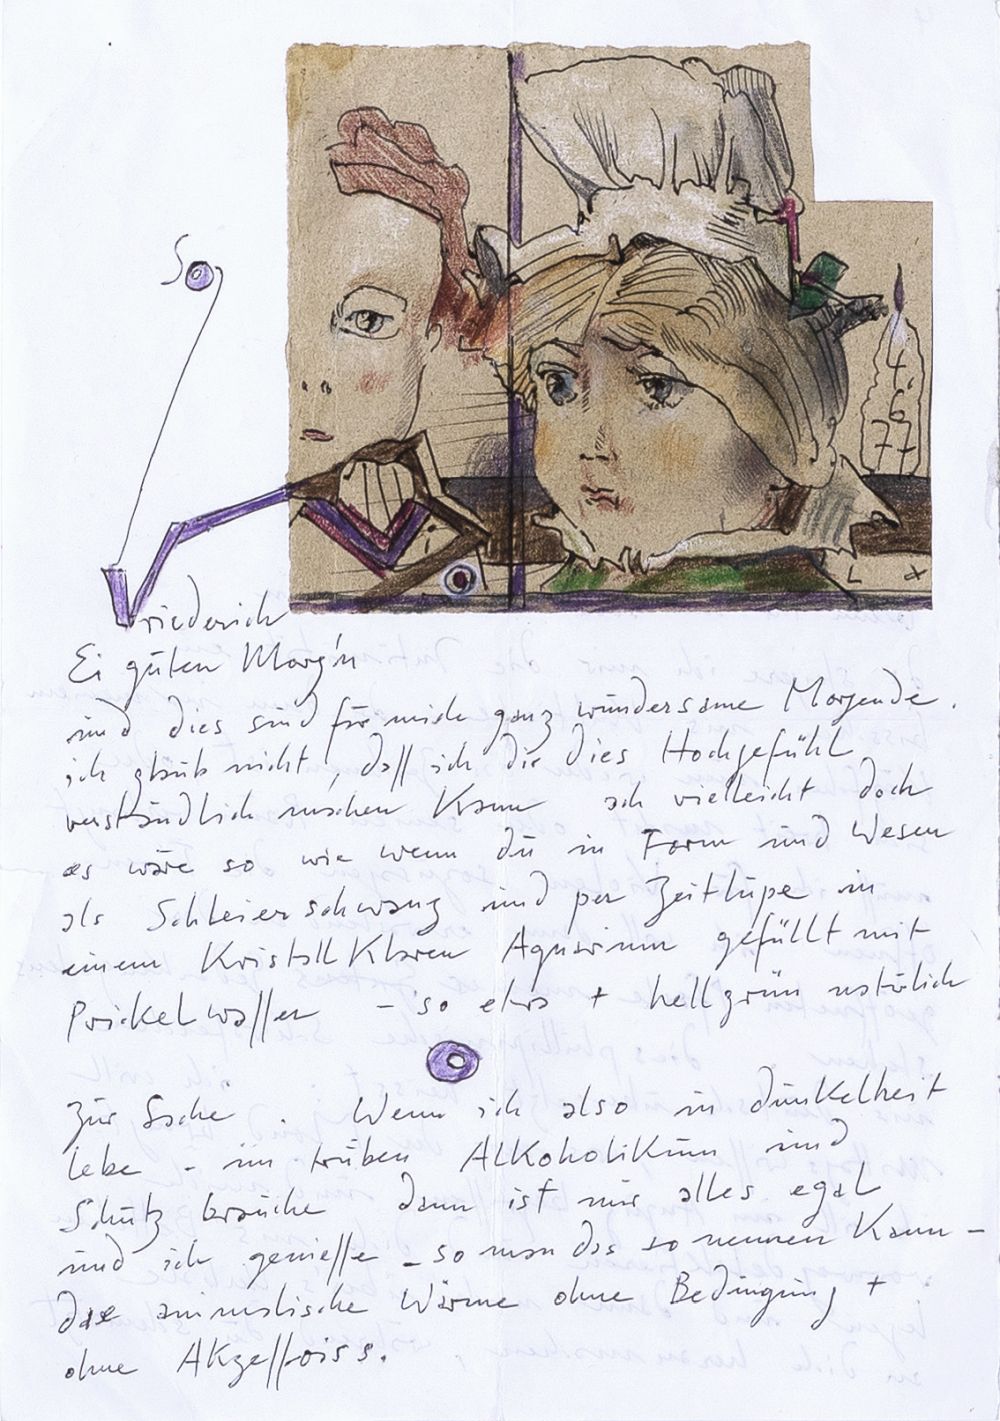 So
4.
6
77
L x
Vriederich
Ei guten Morg'n
und dies sind für mich ganz wundersame Morgende.
ich glaub nicht daß ich die dies Hochgefühl
verständlich machen kann ach vielleicht doch
es wäre so wie wenn du in Form und Wesen
als Schleierschwanz und per Zeitlupe in
einem KristallKlaren Aquarium gefüllt mit
Prickelwasser - so etwa + hellgrün natürlich
Zur Sache. Wenn ich also in dunkelheit
lebe - im trüben Alkoholikum und
Schutz brauche dann ist mir alles egal
und ich genieße - so man das so nennen Kann -
das animalische Wärme ohne Bedingung +
ohne Akzeßoiss.